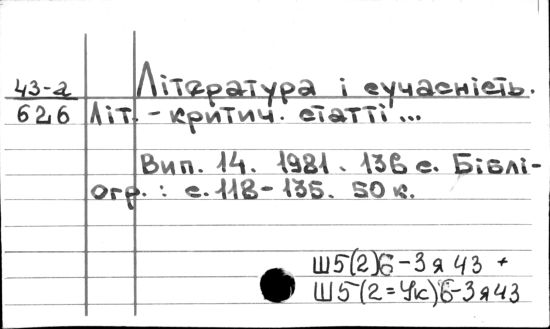 43-а
626
Література і сучасність.
Літ. - критич. статті...
Вип. 14. 1981. 136 с. Біблі-
огр.: с. 118-135. 50 к.
Ш5(2)6-3я43 +
Ш5(2=Ук)6-3я43